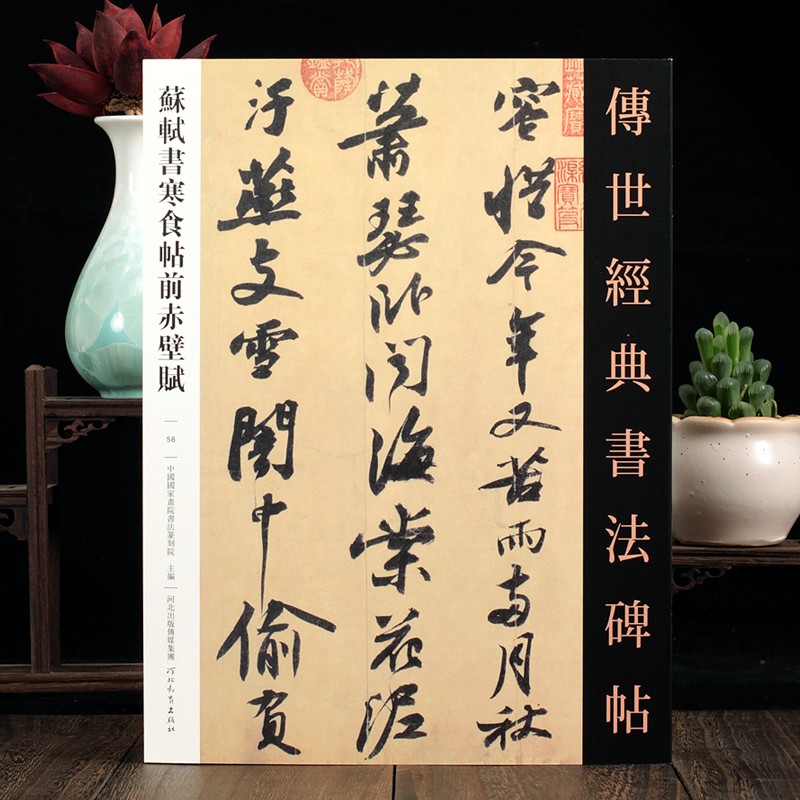 傳世經典書法碑帖
容惜今年又苦雨兩月秋
蕭瑟卧聞海棠花泥
汙燕支雪闇中偷負
蘇軾書寒食帖前赤壁賦
58
中國國家畫院書法篆刻院 主編
河北出版傳媒集團
河北教育出版社